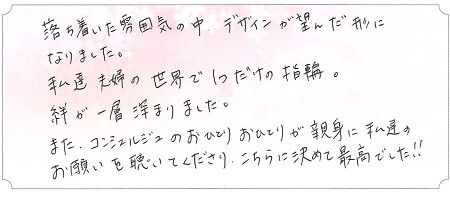 落ち着いた雰囲気の中 デザインが望んだ形に
なりました。
私達 夫婦の世界で1つだけの指輪。
絆が一層深まりました。
また、コンシェルジュのおひとりおひとりが親身に私達の
お願いを聴いてくださり、こちらに決めて最高でした!!